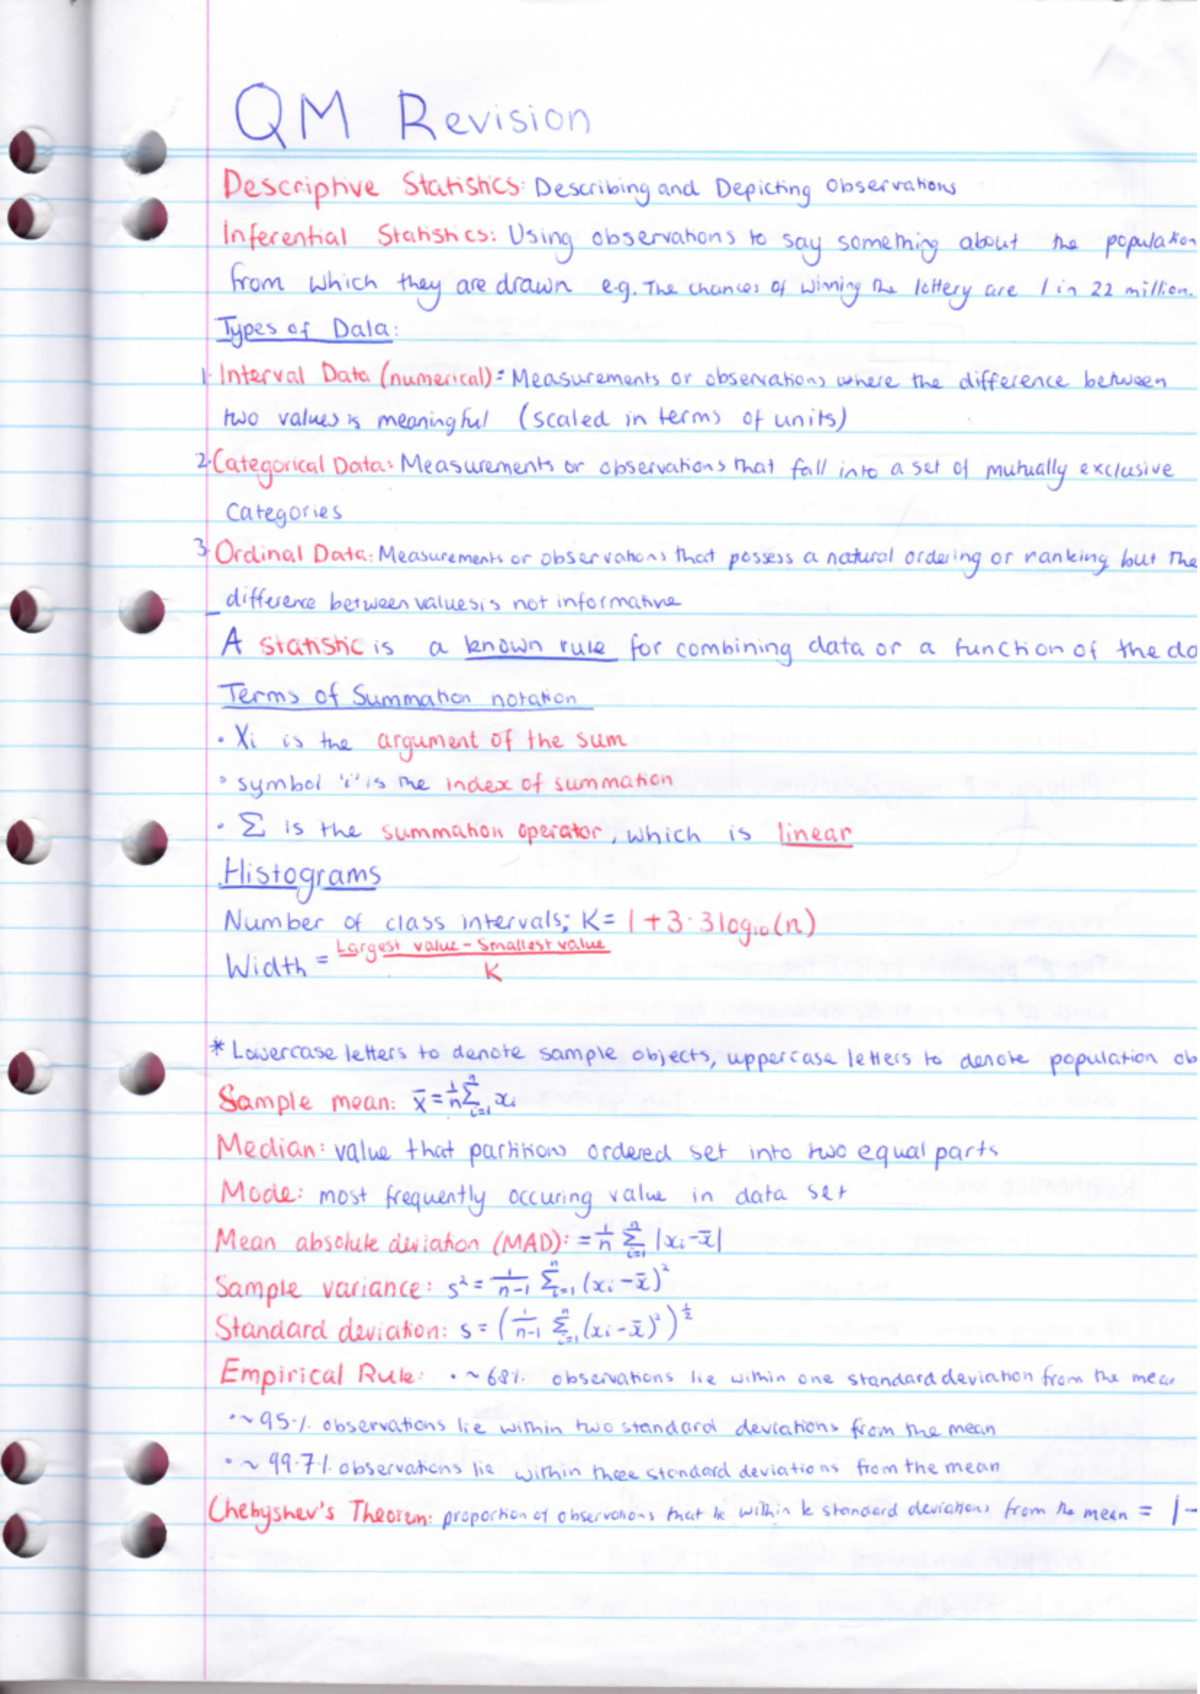 QM Revision
Descriptive Statistics: Describing and Depicting observations
Inferential Statistics: Using observations to say something about the population
from which they are drawn e.g. The chances of winning the lottery are 1 in 22 million.
Types of Data:
1. Interval Data (numerical): Measurements or observations where the difference between
two values is meaningful (scaled in terms of units)
2. Categorical Data: Measurements or observations that fall into a set of mutually exclusive
categories
3. Ordinal Data: Measurements or observations that possess a natural ordering or ranking but the
difference between values is not informative
A statistic is a known rule for combining data or a function of the da
Terms of Summation notation
• Xi is the argument of the sum
• symbol 'i' is the index of summation
• Σ is the summation operator, which is linear
Histograms
Number of class intervals; K= 1+3·3log₁₀(n)
Width = Largest value - Smallest value / K
* Lowercase letters to denote sample objects, uppercase letters to denote population ob
Sample mean: x̄ = 1/n Σⁿᵢ₌₁ xᵢ
Median: value that partitions ordered set into two equal parts
Mode: most frequently occuring value in data set
Mean absolute deviation (MAD): = 1/n Σⁿᵢ₌₁ |xᵢ-x̄|
Sample variance: s² = 1/n-1 Σⁿᵢ₌₁ (xᵢ-x̄)²
Standard deviation: s = (1/n-1 Σⁿᵢ₌₁ (xᵢ-x̄)²)^1/2
Empirical Rule: • ~68% observations lie within one standard deviation from the mean
• ~95% observations lie within two standard deviations from the mean
• ~99·7% observations lie within three standard deviations from the mean
Chebyshev's Theorem: proportion of observations that lie within k standard deviations from the mean = 1-